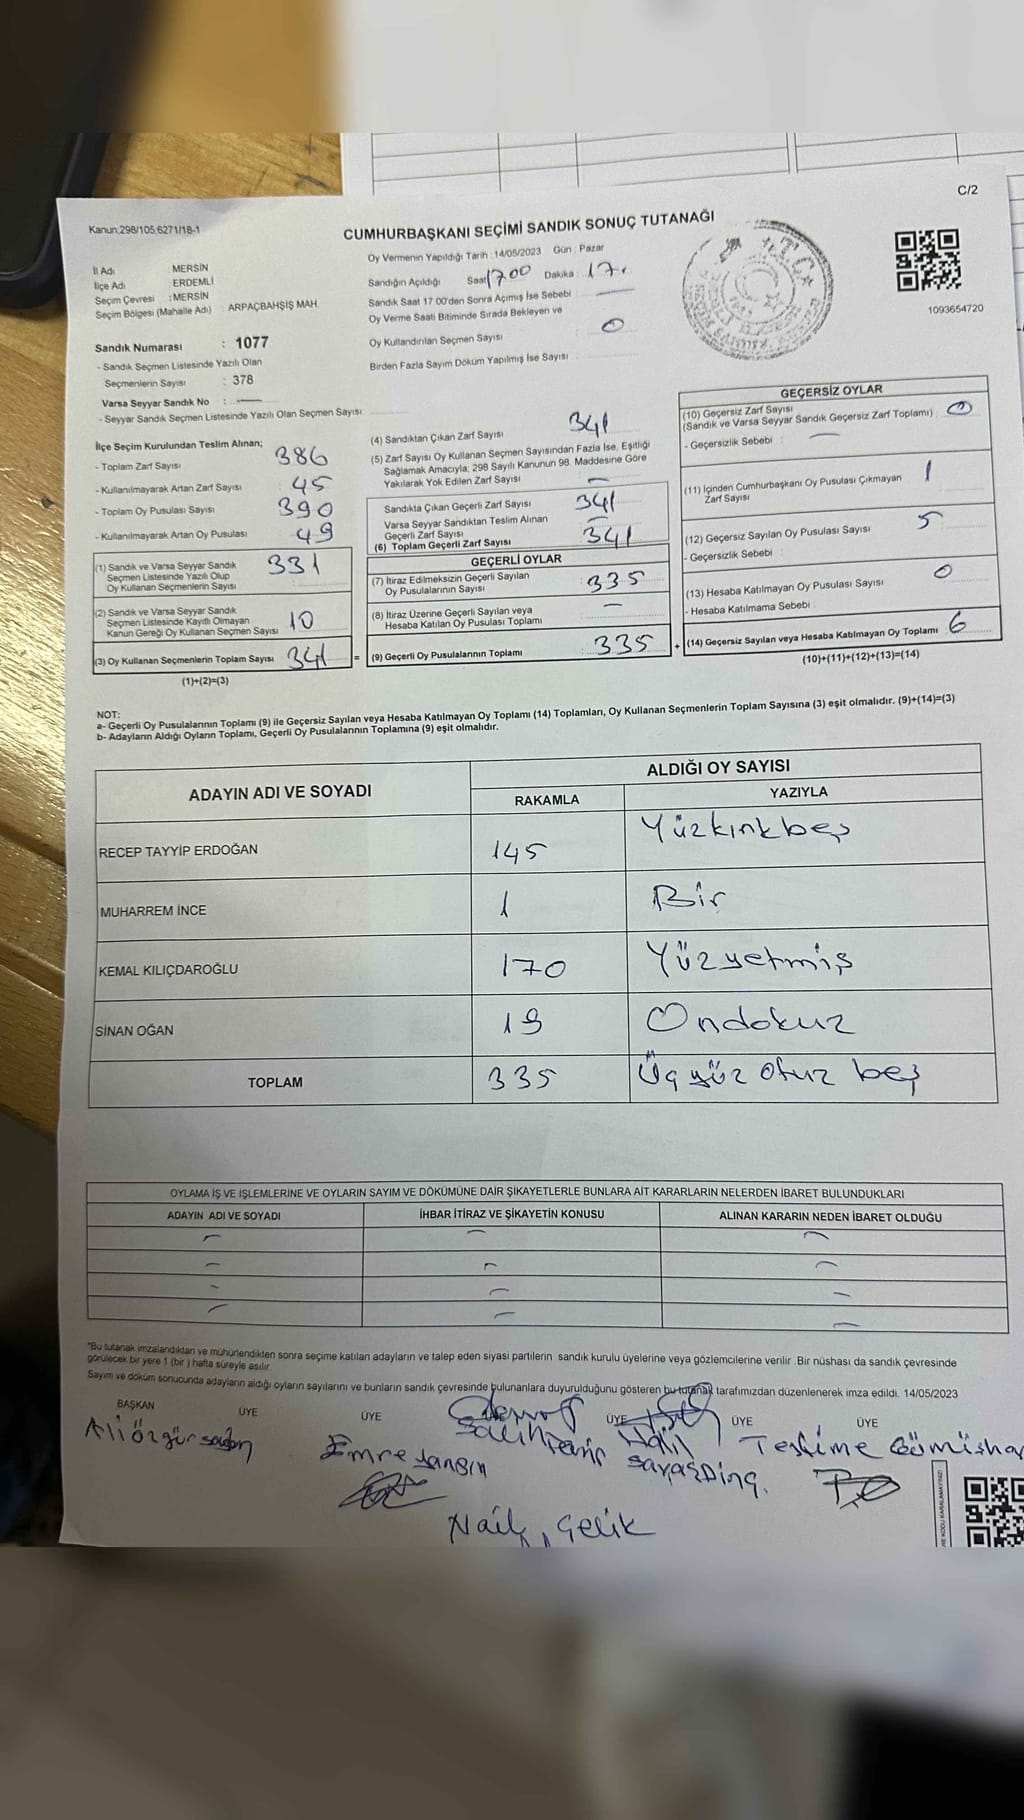 C/2
Kanun.298/105,6271/18-1
CUMHURBAŞKANI SEÇİMİ SANDIK SONUÇ TUTANAĞI
İl Adı : MERSİN
İlçe Adı : ERDEMLİ
Seçim Çevresi : MERSİN
Seçim Bölgesi (Mahalle Adı) : ARPAÇBAHŞİŞ MAH.
Sandık Numarası : 1077
- Sandık Seçmen Listesinde Yazılı Olan
Seçmenlerin Sayısı : 378
Varsa Seyyar Sandık No :
- Seyyar Sandık Seçmen Listesinde Yazılı Olan Seçmen Sayısı
Oy Vermenin Yapıldığı Tarih : 14/05/2023 Gün : Pazar
Sandığın Açıldığı Saat 17.00 Dakika : 17.
Sandık Saat 17 00'den Sonra Açımış İse Sebebi
Oy Verme Saati Bitiminde Sırada Bekleyen ve
Oy Kullandırılan Seçmen Sayısı 0
Birden Fazla Sayım Döküm Yapılmış İse Sayısı
1093654720
İlçe Seçim Kurulundan Teslim Alınan;
- Toplam Zarf Sayısı 386
- Kullanılmayarak Artan Zarf Sayısı 45
- Toplam Oy Pusulası Sayısı 390
- Kullanılmayarak Artan Oy Pusulası 49
(1) Sandık ve Varsa Seyyar Sandık 331
Seçmen Listesinde Yazılı Olup
Oy Kullanan Seçmenlerin Sayısı
(2) Sandık ve Varsa Seyyar Sandık
Seçmen Listesinde Kayıtlı Olmayan
Kanun Gereği Oy Kullanan Seçmen Sayısı 10
(3) Oy Kullanan Seçmenlerin Toplam Sayısı 341 =
(1)+(2)=(3)
(4) Sandıktan Çıkan Zarf Sayısı 341
(5) Zarf Sayısı Oy Kullanan Seçmen Sayısından Fazla İse, Eşitliği
Sağlamak Amacıyla, 298 Sayılı Kanunun 98. Maddesine Göre
Yakılarak Yok Edilen Zarf Sayısı –
Sandıkta Çıkan Geçerli Zarf Sayısı 341
Varsa Seyyar Sandıktan Teslim Alınan
Geçerli Zarf Sayısı –
(6) Toplam Geçerli Zarf Sayısı 341
GEÇERLİ OYLAR
(7) İtiraz Edilmeksizin Geçerli Sayılan
Oy Pusulalarının Sayısı 335
(8) İtiraz Üzerine Geçerli Sayılan veya
Hesaba Katılan Oy Pusulası Toplamı –
(9) Geçerli Oy Pusulalarının Toplamı 335 +
GEÇERSİZ OYLAR
(10) Geçersiz Zarf Sayısı
(Sandık ve Varsa Seyyar Sandık Geçersiz Zarf Toplamı) 0
- Geçersizlik Sebebi : –
(11) İçinden Cumhurbaşkanı Oy Pusulası Çıkmayan 1
Zarf Sayısı
(12) Geçersiz Sayılan Oy Pusulası Sayısı 5
- Geçersizlik Sebebi :
(13) Hesaba Katılmayan Oy Pusulası Sayısı 0
- Hesaba Katılmama Sebebi :
(14) Geçersiz Sayılan veya Hesaba Katılmayan Oy Toplamı 6
(10)+(11)+(12)+(13)=(14)
NOT:
a- Geçerli Oy Pusulalarının Toplamı (9) ile Geçersiz Sayılan veya Hesaba Katılmayan Oy Toplamı (14) Toplamları, Oy Kullanan Seçmenlerin Toplam Sayısına (3) eşit olmalıdır. (9)+(14)=(3)
b- Adayların Aldığı Oyların Toplamı, Geçerli Oy Pusulalarının Toplamına (9) eşit olmalıdır.
ADAYIN ADI VE SOYADI ALDIĞI OY SAYISI
RAKAMLA YAZIYLA
RECEP TAYYİP ERDOĞAN 145 Yüzkırkbeş
MUHARREM İNCE 1 Bir
KEMAL KILIÇDAROĞLU 170 Yüzyetmiş
SİNAN OĞAN 19 Ondokuz
TOPLAM 335 Üçyüz otuz beş
OYLAMA İŞ VE İŞLEMLERİNE VE OYLARIN SAYIM VE DÖKÜMÜNE DAİR ŞİKAYETLERLE BUNLARA AİT KARARLARIN NELERDEN İBARET BULUNDUKLARI
ADAYIN ADI VE SOYADI İHBAR İTİRAZ VE ŞİKAYETİN KONUSU ALINAN KARARIN NEDEN İBARET OLDUĞU
*Bu tutanak imzalandıktan ve mühürlendikten sonra seçime katılan adayların ve talep eden siyasi partilerin sandık kurulu üyelerine veya gözlemcilerine verilir .Bir nüshası da sandık çevresinde
görülecek bir yere 1 (bir ) hafta süreyle asılır.
Sayım ve döküm sonucunda adayların aldığı oyların sayılarını ve bunların sandık çevresinde bulunanlara duyurulduğunu gösteren bu tutanak tarafımızdan düzenlenerek imza edildi. 14/05/2023
BAŞKAN ÜYE ÜYE ÜYE ÜYE ÜYE
Ali özgür Emre yangın Halil Teslime
Nail Çelik